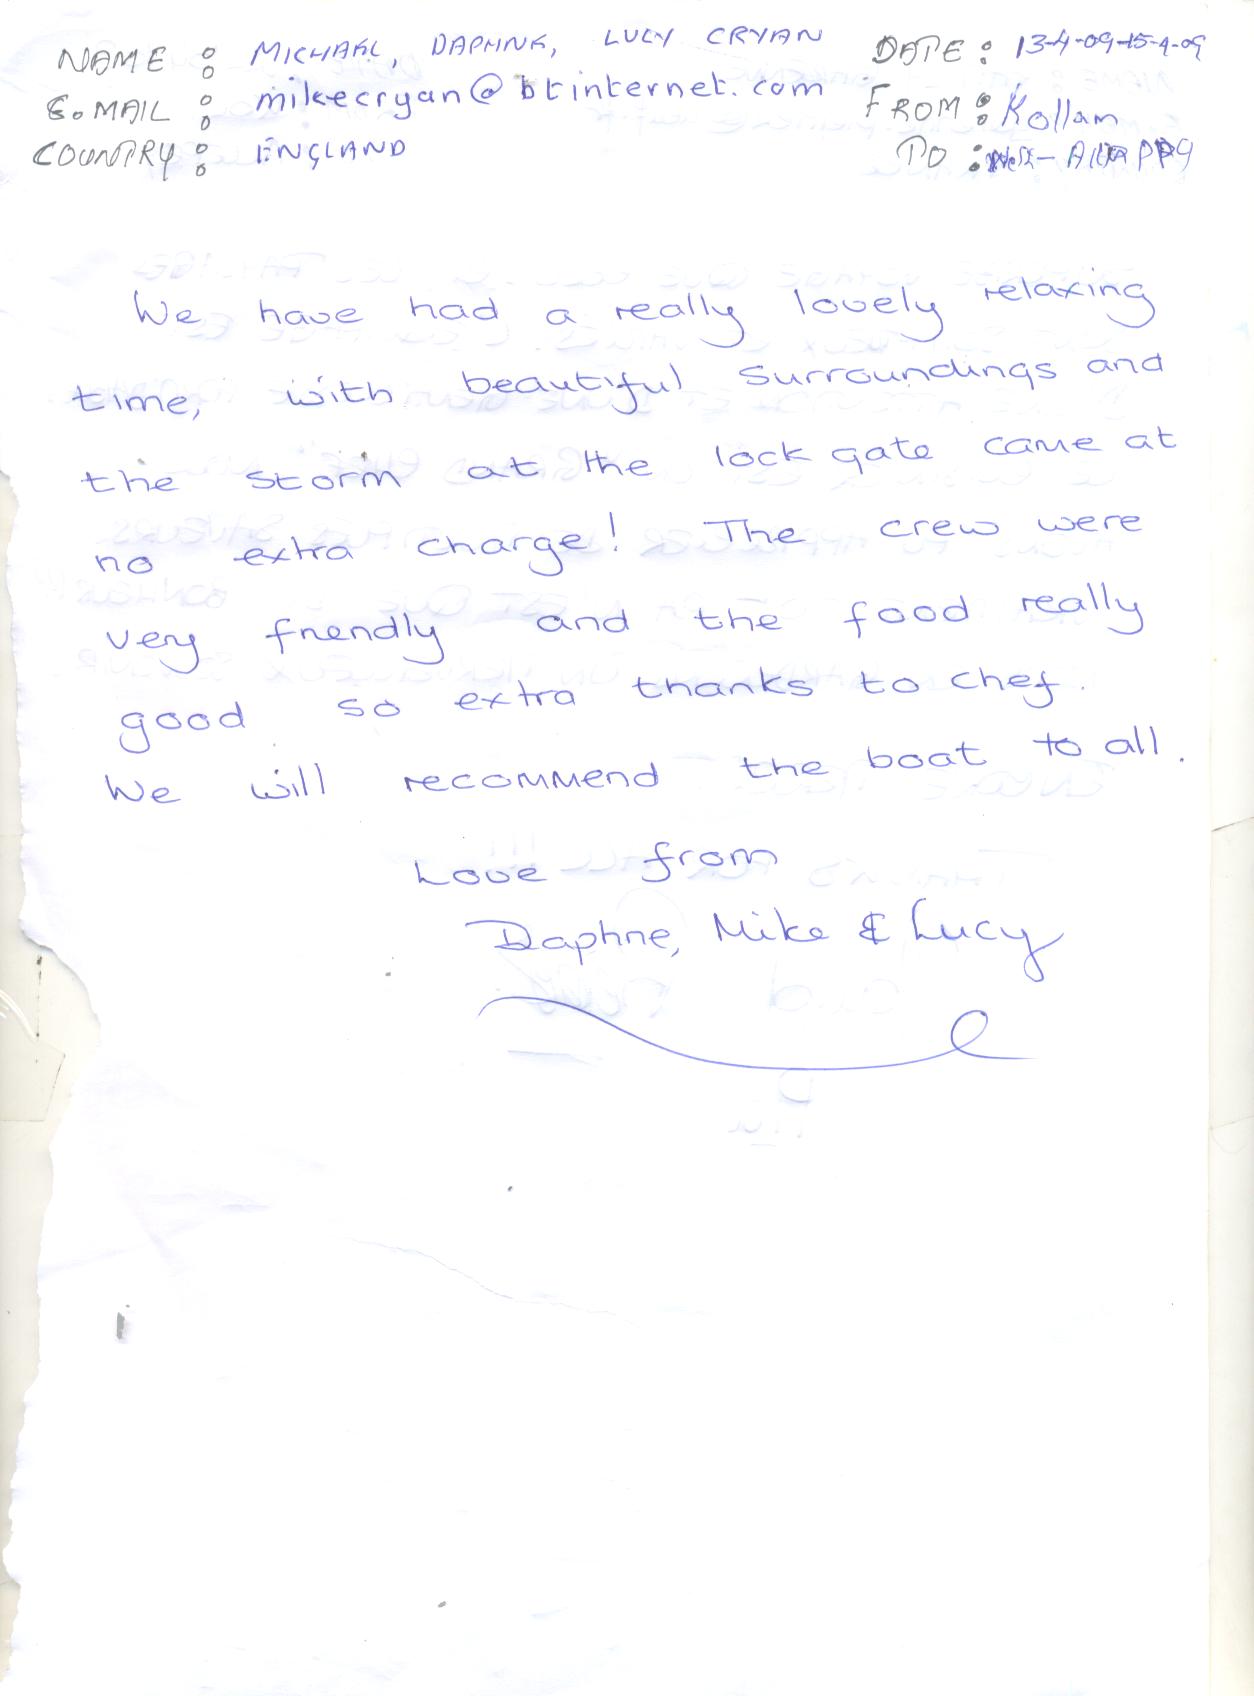 NAME : MICHAEL, DAPHNE, LUCY CRYAN DATE : 13-4-09-15-4-09
E.MAIL : mikecryan@btinternet.com FROM : Kollam
COUNTRY : ENGLAND TO :
We have had a really lovely relaxing
time, with beautiful surroundings and
the storm at the lock gate came at
no extra charge! The crew were
very friendly and the food really
good so extra thanks to chef.
We will recommend the boat to all.
Love from
Daphne, Mike & Lucy